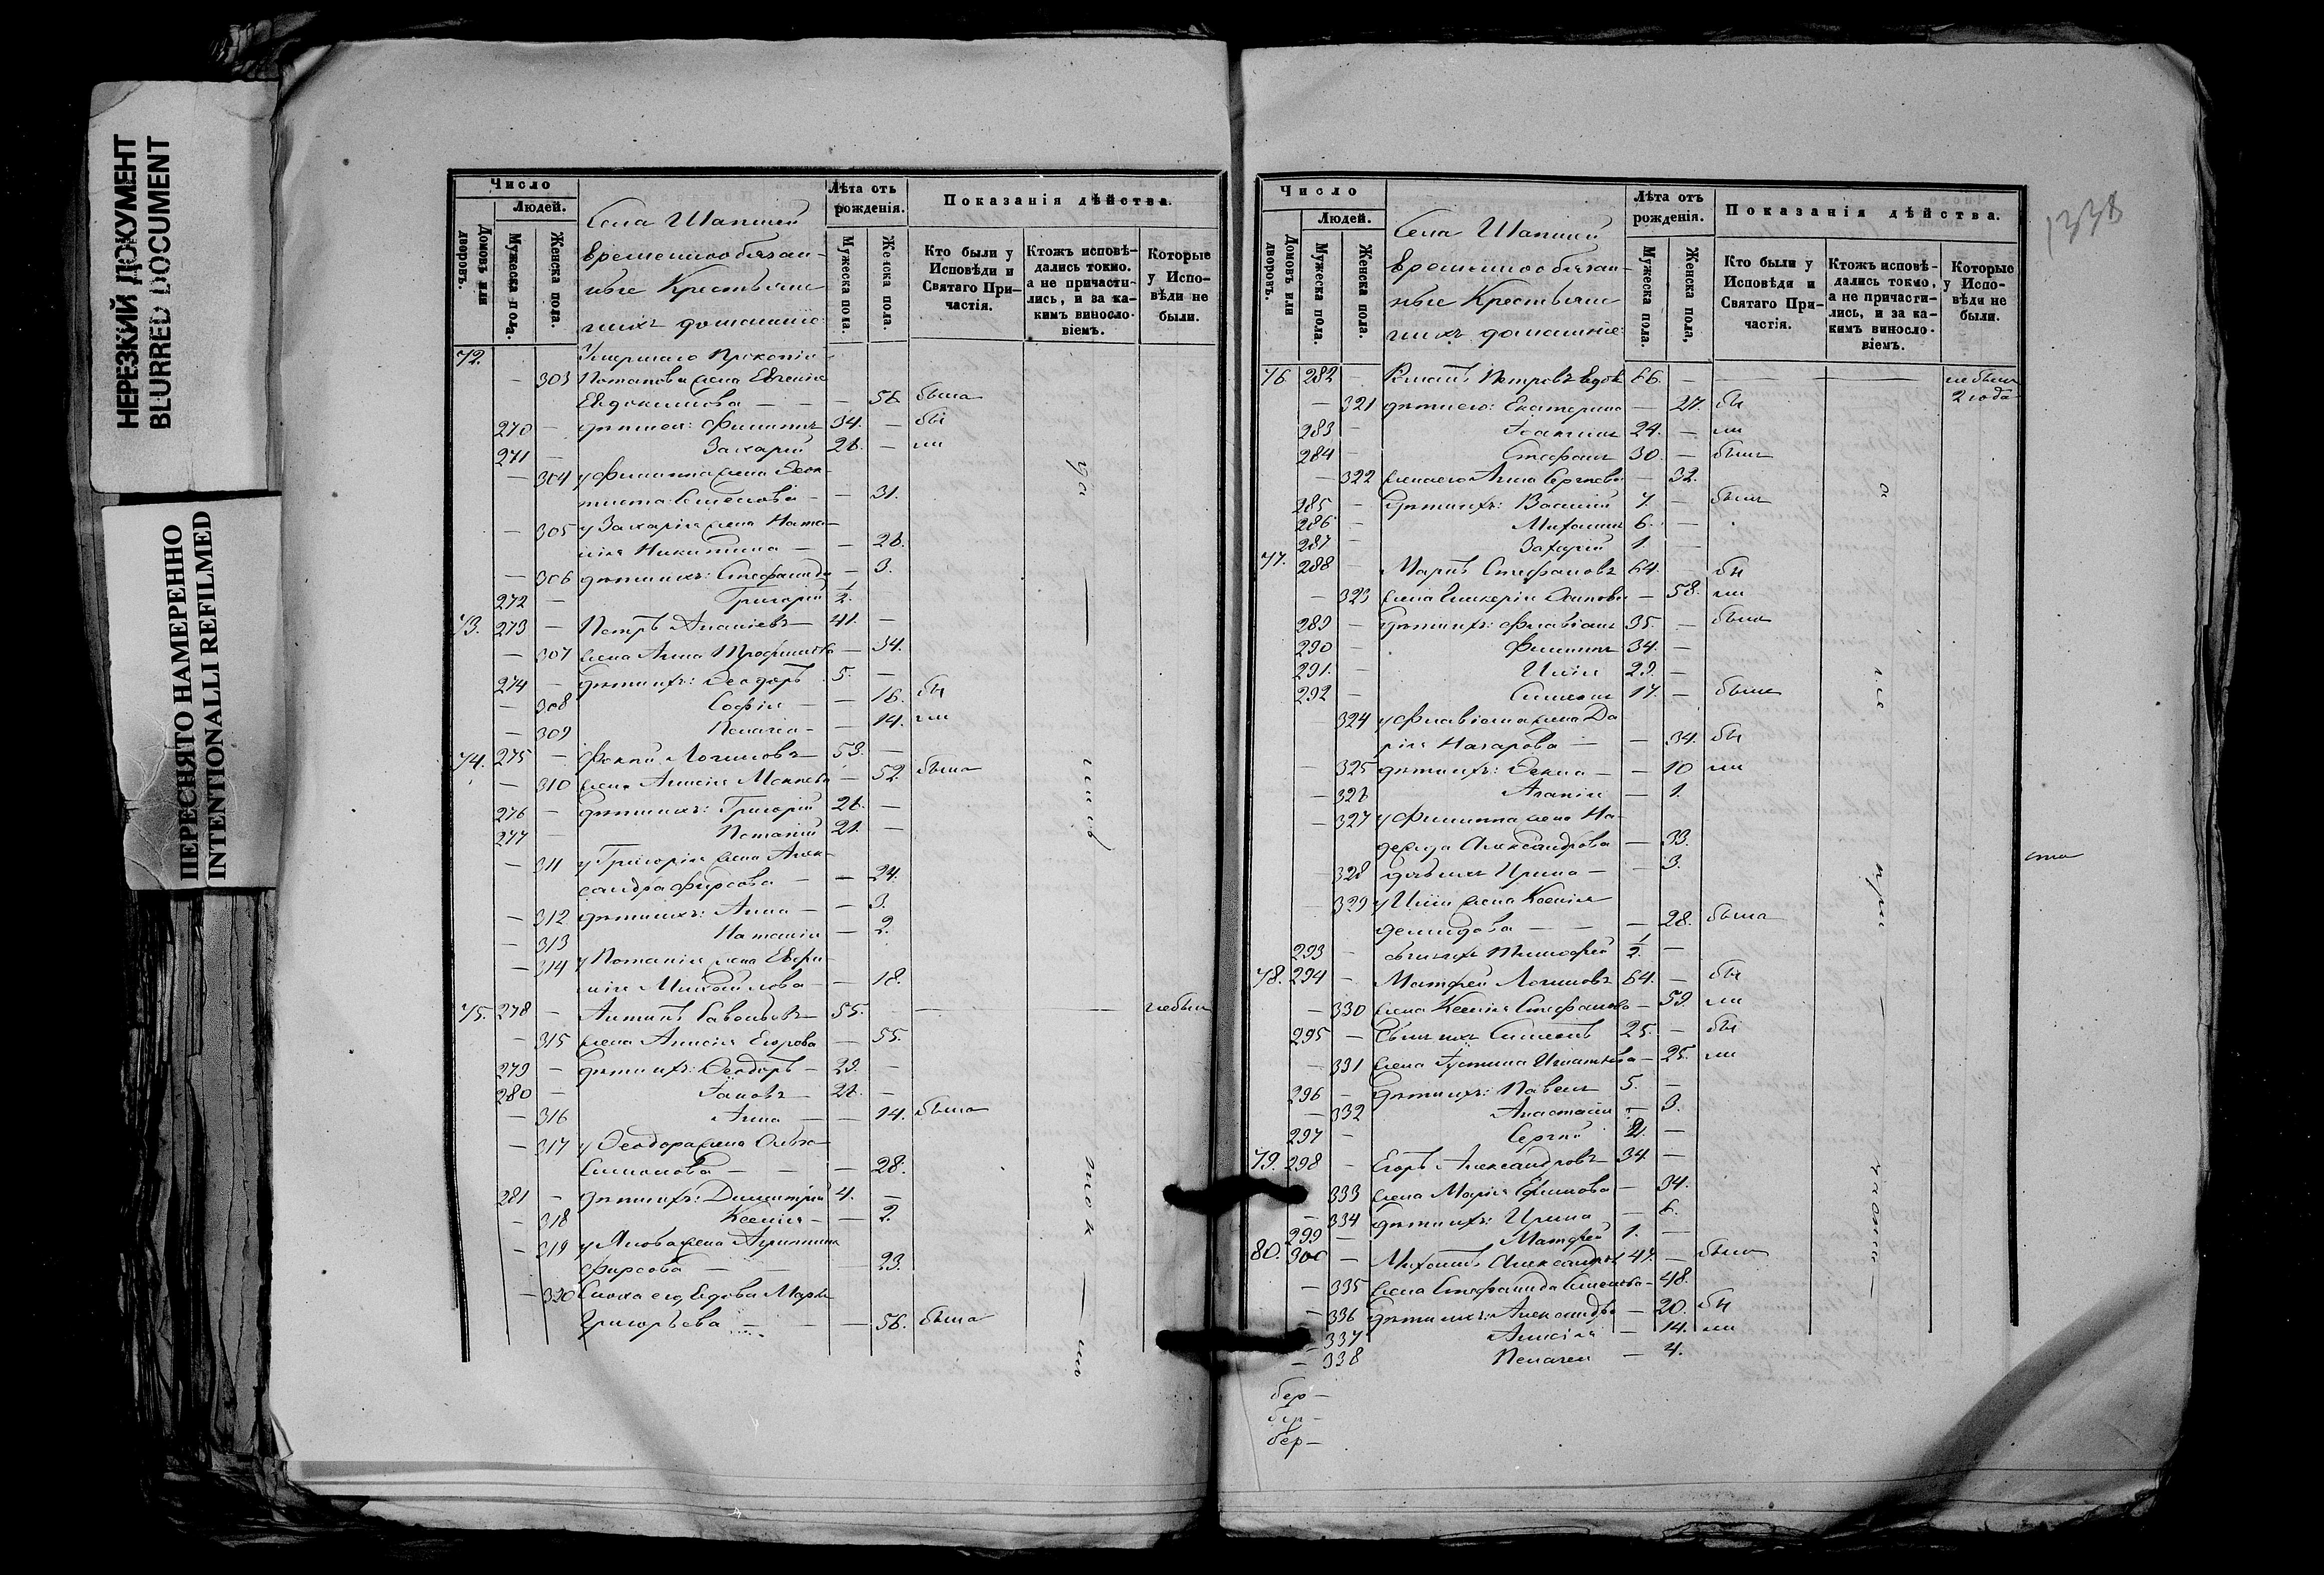 НЕРЕЗКИЙ ДОКУМЕНТ
BLURRED DOCUMENT
ПЕРЕСНЯТО НАМЕРЕННО
INTENTIONALLI REFILMED
Число
Людей.
Домовъ или дворовъ.
Мужеска пола.
Женска пола.
Села Шапшей
временнообязан-
ные Крестьяне
ихъ домашніе
Лѣта отъ рожденія.
Мужеска пола.
Женска пола.
Показанія дѣйства.
Кто были у Исповѣди и Святаго При-частія.
Ктожъ исповѣ-дались токмо. а не причасти-лись, и за ка-кимъ виносло-віемъ.
Которые у Испо-вѣди не были.
72. Умершаго Прокопія
— 303 Потапова жена Евгенія
Евдокимова — — — 56 была
270 — дѣти его: Филиппъ 34. — бы
271 — Захарій 26. — ли
— 304 у Филиппа жена Ѳеок-
тиста Семенова — — 31.
— 305 у Захарія жена Ната-
лія Никитина — — 26.
— 306 дѣти ихъ: Стефанида — 3.
272 — Григорій ½.
73. 273 — Петръ Ананіевъ — 41. —
— 307 жена Анна Трофимова — 34.
274 — дѣти ихъ: Ѳеодоръ 5. —
— 308 Софія — — 16. бы
— 309 Пелагія — — 14. ли
74. 275 — Фокій Логиновъ — 53. —
— 310 жена Анисія Мокіева — 52. была
276 — дѣти ихъ: Григорій 26. —
277 — Потапій 21. —
— 311 у Григорія жена Алек-
сандра Фирсова — — 24.
— 312 дѣти ихъ: Анна — — 3.
— 313 Наталія — 2.
— 314 у Потапія жена Евфи-
мія Михайлова — — 18.
75. 278 — Антипъ Савельевъ — 55. — — — не былъ
— 315 жена Анисія Егорова — 55.
279 — дѣти ихъ: Ѳеодоръ — 29. —
280 — Іаковъ — 26. —
— 316 Анна — — 14. была
— 317 у Ѳеодора жена Ольга
Симонова — — — 28.
281 — дѣти ихъ: Димитрій 4. —
— 318 Ксенія — — 2.
— 319 у Якова жена Агриппина
Фирсова — — 23.
— 320 Сноха его, вдова Марѳа
Григорьева — — — 56. была
Число
Людей.
Домовъ или дворовъ.
Мужеска пола.
Женска пола.
Села Шапшей
временнообязан-
ные Крестьяне
ихъ домашніе
Лѣта отъ рожденія.
Мужеска пола.
Женска пола,
Показанія дѣйства.
Кто были у Исповѣди и Святаго При-частія.
Ктожъ исповѣ-дались токмо, а не причасти-лись, и за ка-кимъ виносло-віемъ.
Которые у Испо-вѣди не были.
1338
76 282 — Игнатъ Петровъ вдов. 66. — — — не былъ
2 года
— 321 дѣти его: Екатерина — 27. бы
283 — Іоакимъ 24. — ли
284 — Стефанъ 30. — былъ
— 322 жена его Анна Сергѣева — 32.
285 — дѣти ихъ: Василій 7. — былъ
286 — Михаилъ 6. —
287 — Захарій 1. —
77. 288 — Маркъ Стефановъ 64. — бы
— 323 жена Гликерія Осипова — 58. ли
289 — дѣти ихъ: Флавіанъ 35. — былъ
290 — Филиппъ 34. —
291. — Илія 29. —
292 — Симеонъ 17. — былъ
324 у Флавіана жена Да
рія Назарова — — 34. бы
— 325 дѣти ихъ: Ѳекла — — 10 ли
— 326 Агапія — 1.
— 327 у Филиппа жена На-
дежда Александрова — 33.
— 328 дочь ихъ Ирина — — 3.
— 329 у Иліи жена Ксенія
Демидова — — — 28. была
293 — сынъ ихъ Тимофей ½. —
78. 294 — Матфей Логиновъ 64. — бы
— 330 жена Ксенія Стефанова — 59. ли
295 — Сынъ ихъ Симеонъ 25. — бы
— 331 жена Іустина Игнатьева — 25. ли
296 — дѣти ихъ: Павелъ 5. —
— 332 Анастасія — 3.
297 — Сергій 2. —
79. 298 — Егоръ Александровъ 34. —
— 333 жена Марія Ефимова — 34.
— 334 дѣти ихъ: Ирина — 6.
299 — Матфей 1. —
80. 300 — Михаилъ Александровъ 47. — былъ
— 335 жена Стефанида Симонова — 48.
— 336 дѣти ихъ: Александра — 20. бы
— 337 Анисія — 14. ли
— 338 Пелагея — 4.
бер —
бер —
бер —